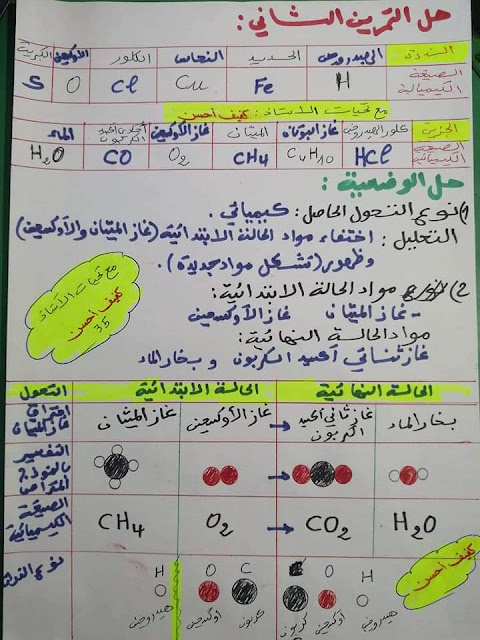 حل التمرين الثاني :
الذرة الهيدروجين الحديد النحاس الكلور الأوكسجين الكبريت
الصيغة الكيميائية H Fe Cu Cl O S
مع تحيات الأستاذ : كيف أحسن
الجزيء كلور الهيدروجين غاز البوتان الميثان غاز الأوكسجين أحادي أكسيد الكربون الماء
الصيغة الكيميائية HCl C4H10 CH4 O2 CO H2O
حل الوضعية :
1) نوع التحول الحاصل : كيميائي .
التعليل : اختفاء مواد الحالة الابتدائية (غاز الميثان والأوكسجين)
وظهور (تشكل مواد جديدة) .
2) مواد الحالة الابتدائية :
- غاز الميثان غاز الأوكسجين
مواد الحالة النهائية :
غاز ثنائي أكسيد الكربون و بخار الماء
مع تحيات الأستاذ
كيف أحسن
35
التحول الحالة الابتدائية الحالة النهائية
احتراق غاز الميثان غاز الميثان غاز الأوكسجين → غاز ثاني أكسيد الكربون بخار الماء
التفسير بالنموذج المتراص
الصيغة الكيميائية CH4 O2 → CO2 H2O
كيف أحسن
نوع الذرات H O C C O H
هيدروجين أوكسجين كربون كربون أوكسجين هيدروجين